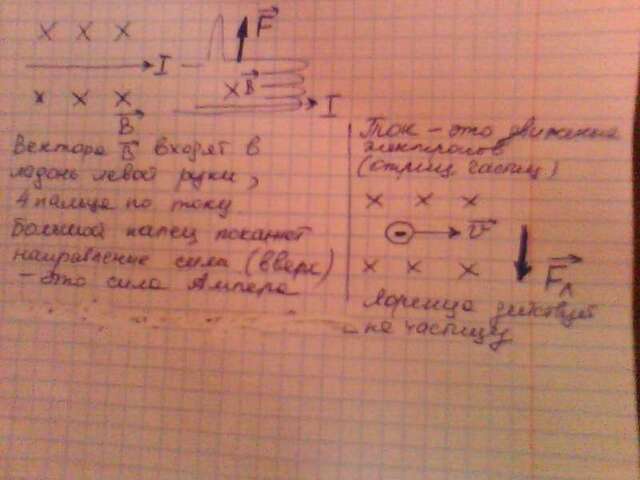 x x x
I
x x x
B
F
x B
I
Вектора B входят в
ладонь левой руки,
4 пальца по току
Большой палец покажет
направление силы (вверх)
- это сила Ампера
Ток - это движение
электронов
(отриц. частиц)
x x x
- v
x x x
Fл
Лоренца действует
на частицу